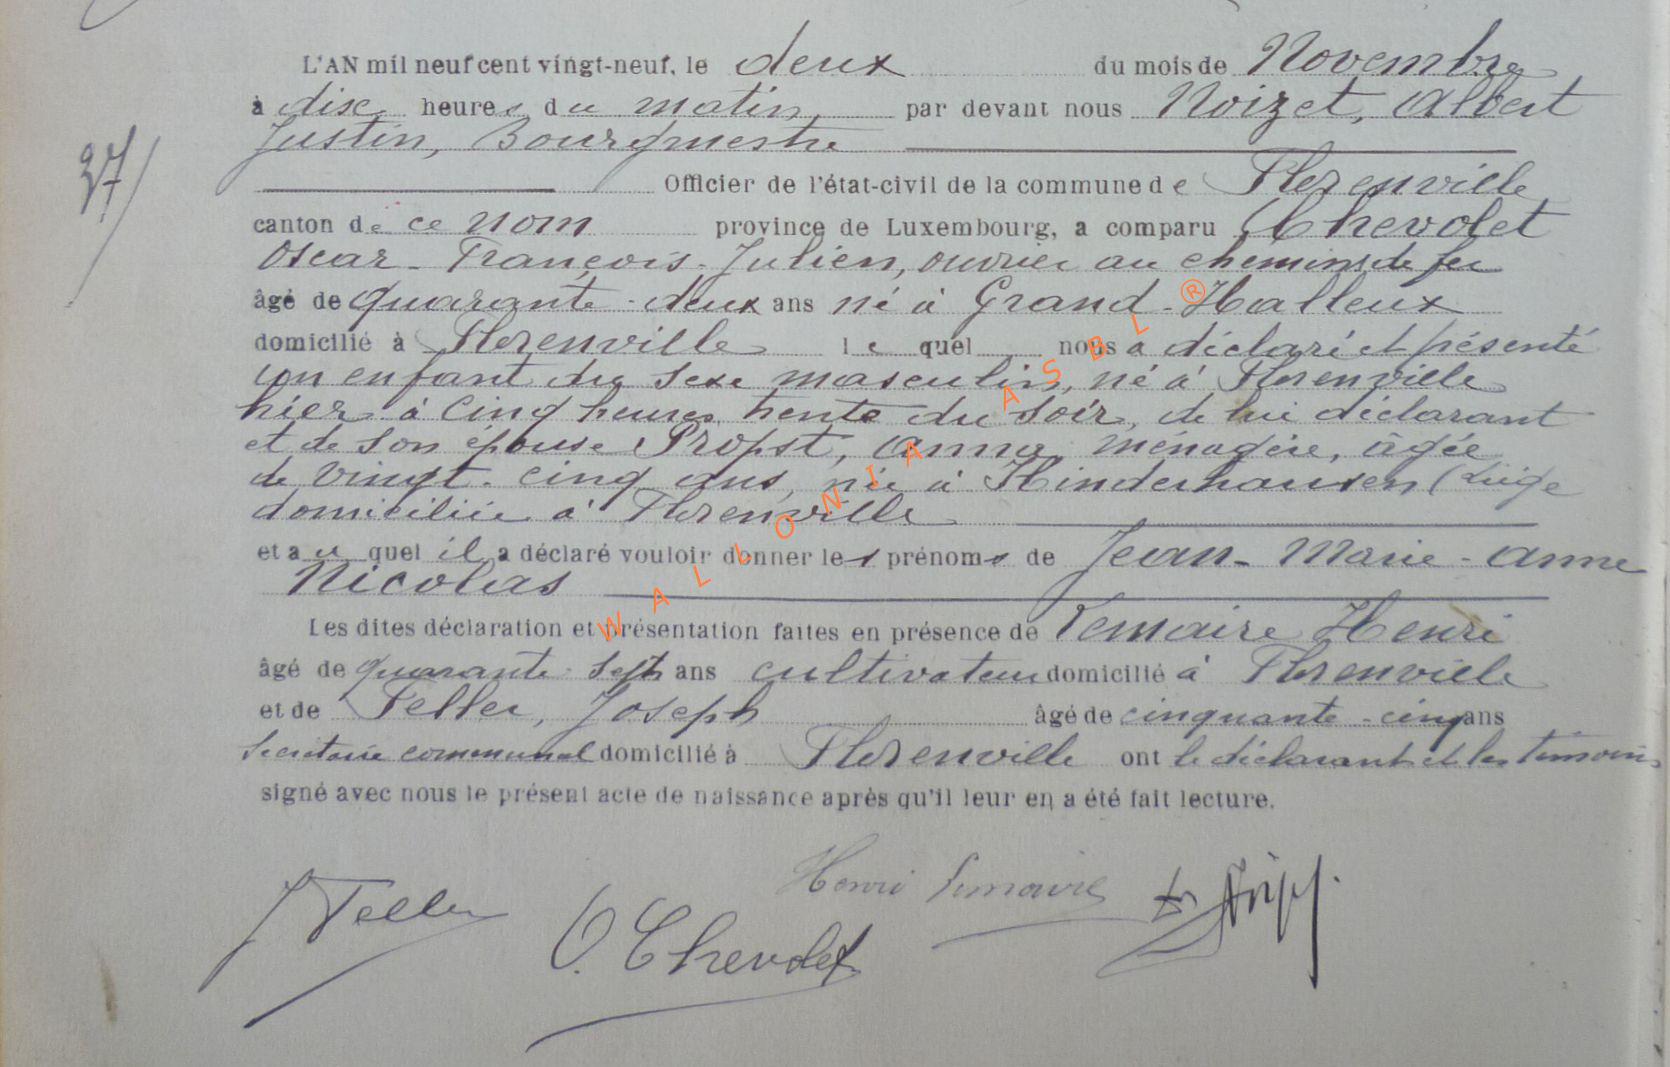 L'AN mil neuf cent vingt-neuf, le deux du mois de Novembre
à dix heures du matin, par devant nous Noizet, Albert
37/
Justin, Bourgmestre
Officier de l'état-civil de la commune de Florenville
canton de ce nom province de Luxembourg, a comparu Chevolet
Oscar-François-Julien, ouvrier au chemins de fer
âgé de quarante-deux ans né à Grand-Halleux
domicilié à Florenville lequel nous a déclaré et présenté
un enfant du sexe masculin, né à Florenville
hier à cinq heures trente du soir, de lui déclarant
et de son épouse Propst, Anna, ménagère, âgée
de vingt-cinq ans, née à Hinderhausen (Liège
domiciliée à Florenville
et auquel il a déclaré vouloir donner les prénoms de Jean-Marie-Anne
Nicolas
Les dites déclaration et présentation faites en présence de Lemaire Henri
âgé de quarante-sept ans cultivateur domicilié à Florenville
et de Feller, Joseph âgé de cinquante-cinq ans
Secrétaire communal domicilié à Florenville ont le déclarant et les témoins
signé avec nous le présent acte de naissance après qu'il leur en a été fait lecture.
WALLONIA ASBL ®
Henri Lemaire
J Feller
O. Chevolet